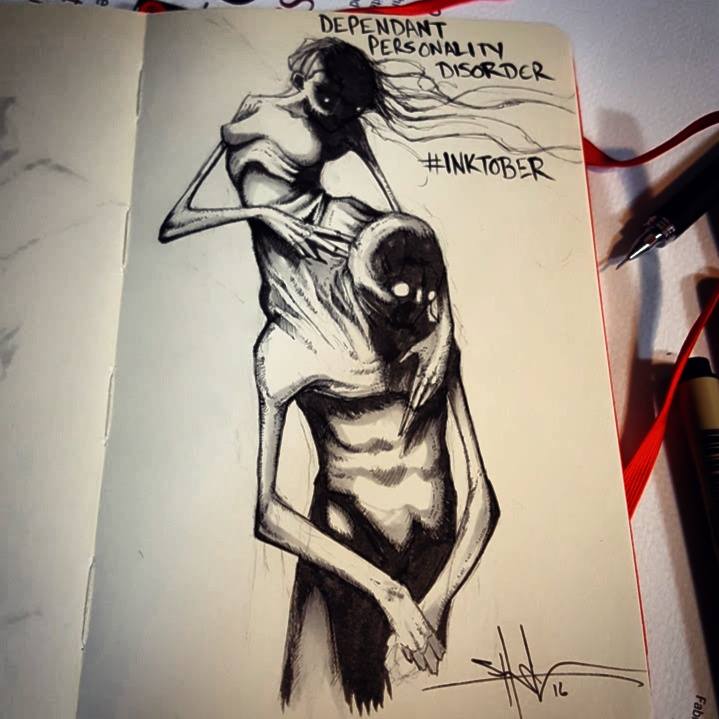 DEPENDANT
PERSONALITY
DISORDER
#INKTOBER
16